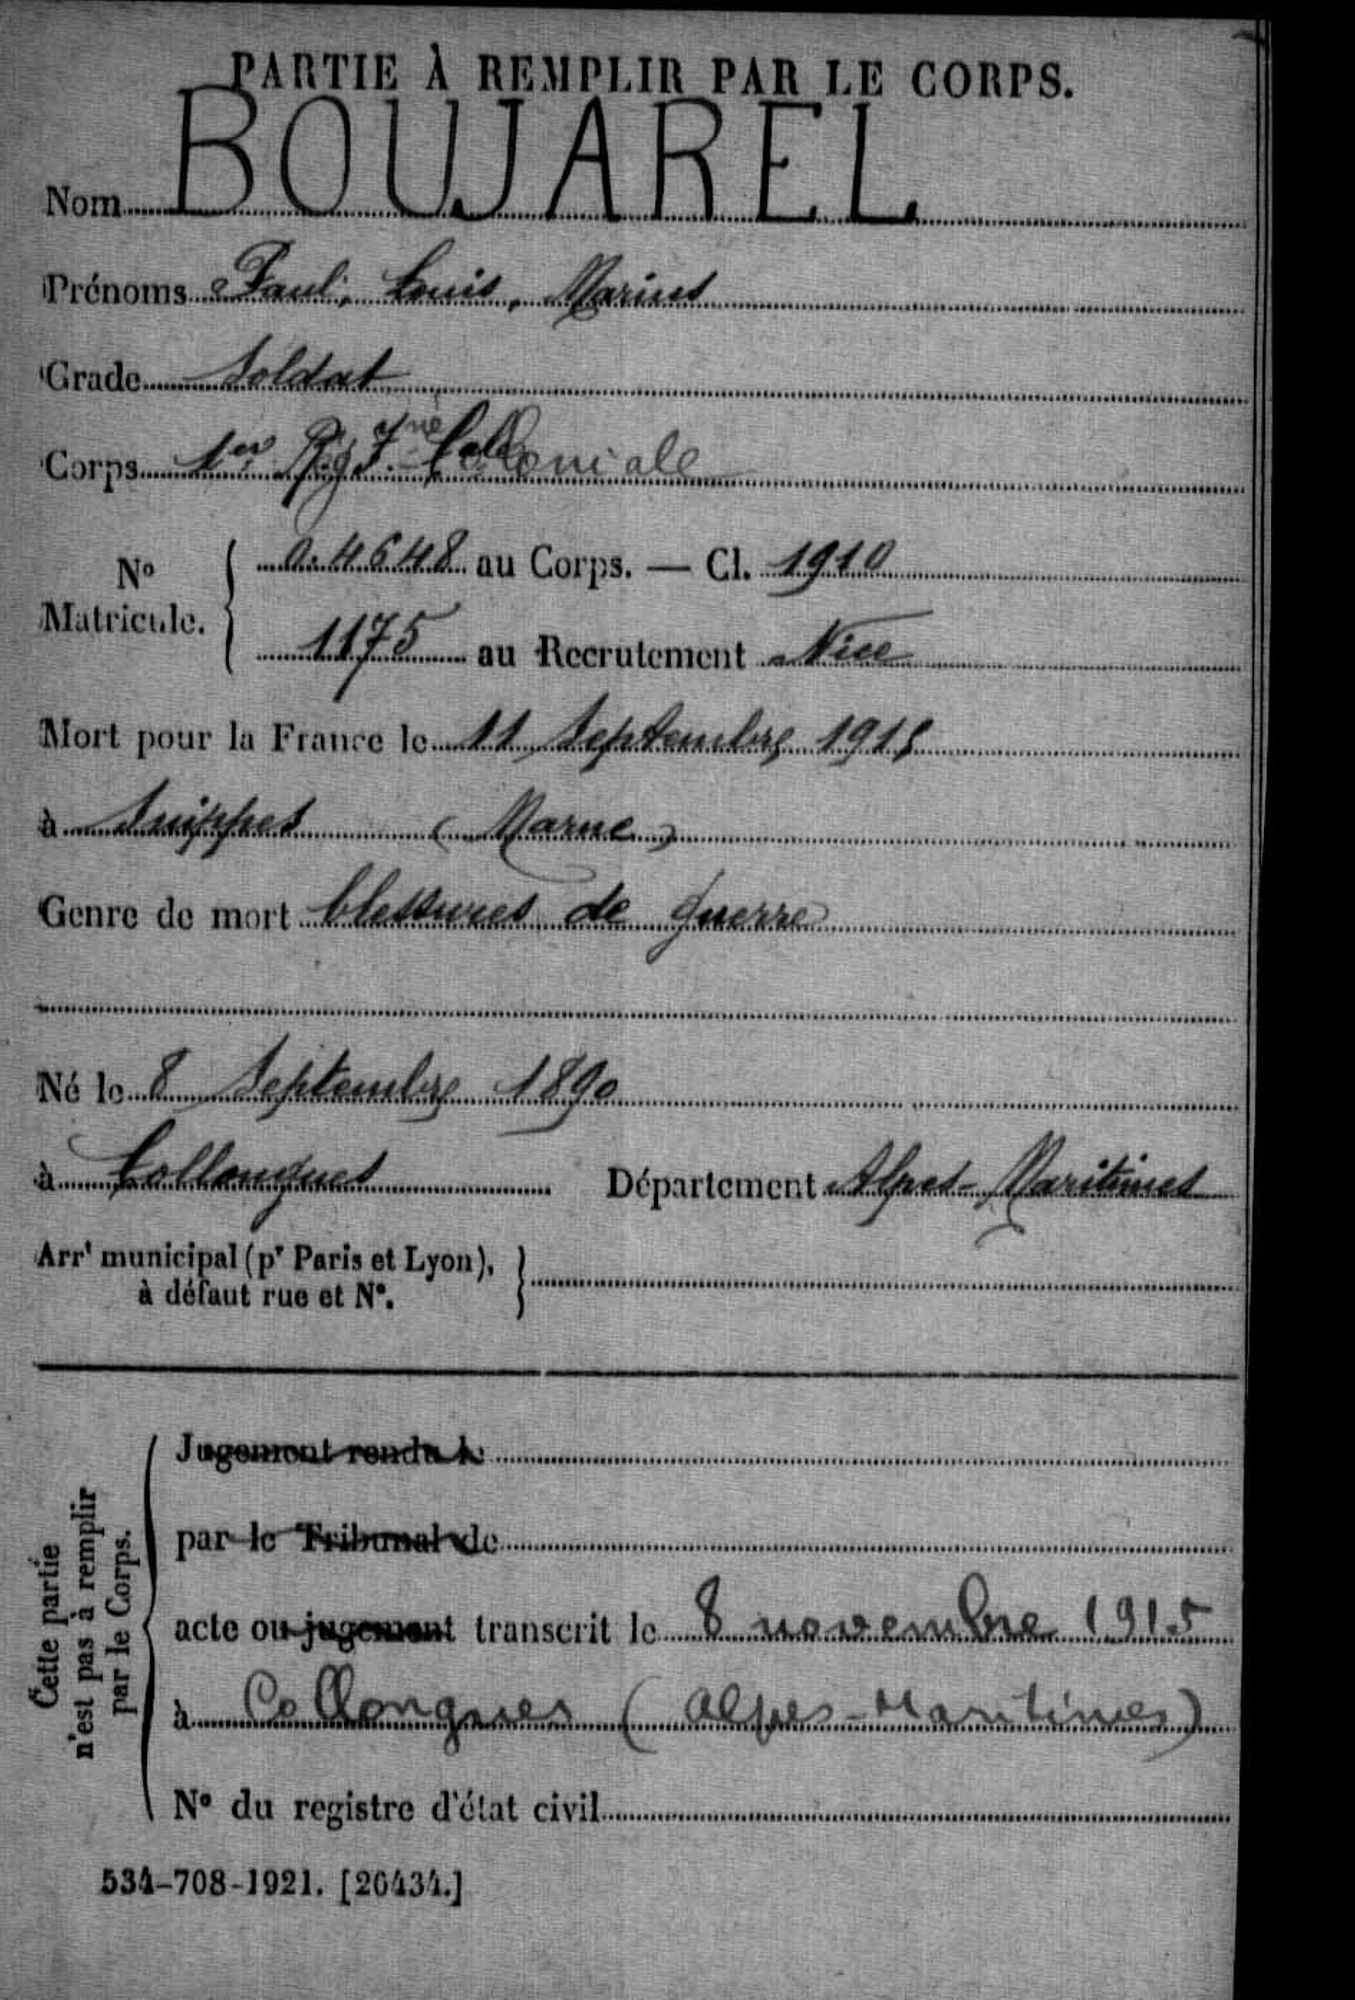 PARTIE À REMPLIR PAR LE CORPS.
Nom BOUJAREL
Prénoms Paul, Louis, Marius
Grade Soldat
Corps 1er Rég. Coloniale
No Matricule. 0.4648 au Corps. — Cl. 1910
1175 au Recrutement Nice
Mort pour la France le 11 Septembre 1915
à Suippes (Marne)
Genre de mort blessures de guerre
Né le 8 Septembre 1890
à Collongues Département Alpes-Maritimes
Arrt municipal (pr Paris et Lyon),
à défaut rue et No.
Cette partie
n'est pas à remplir
par le Corps.
Jugement rendu le
par le Tribunal de
acte ou jugement transcrit le 8 novembre 1915
à Collongues (Alpes-Maritimes)
No du registre d'état civil
534-708-1921. [26434.]